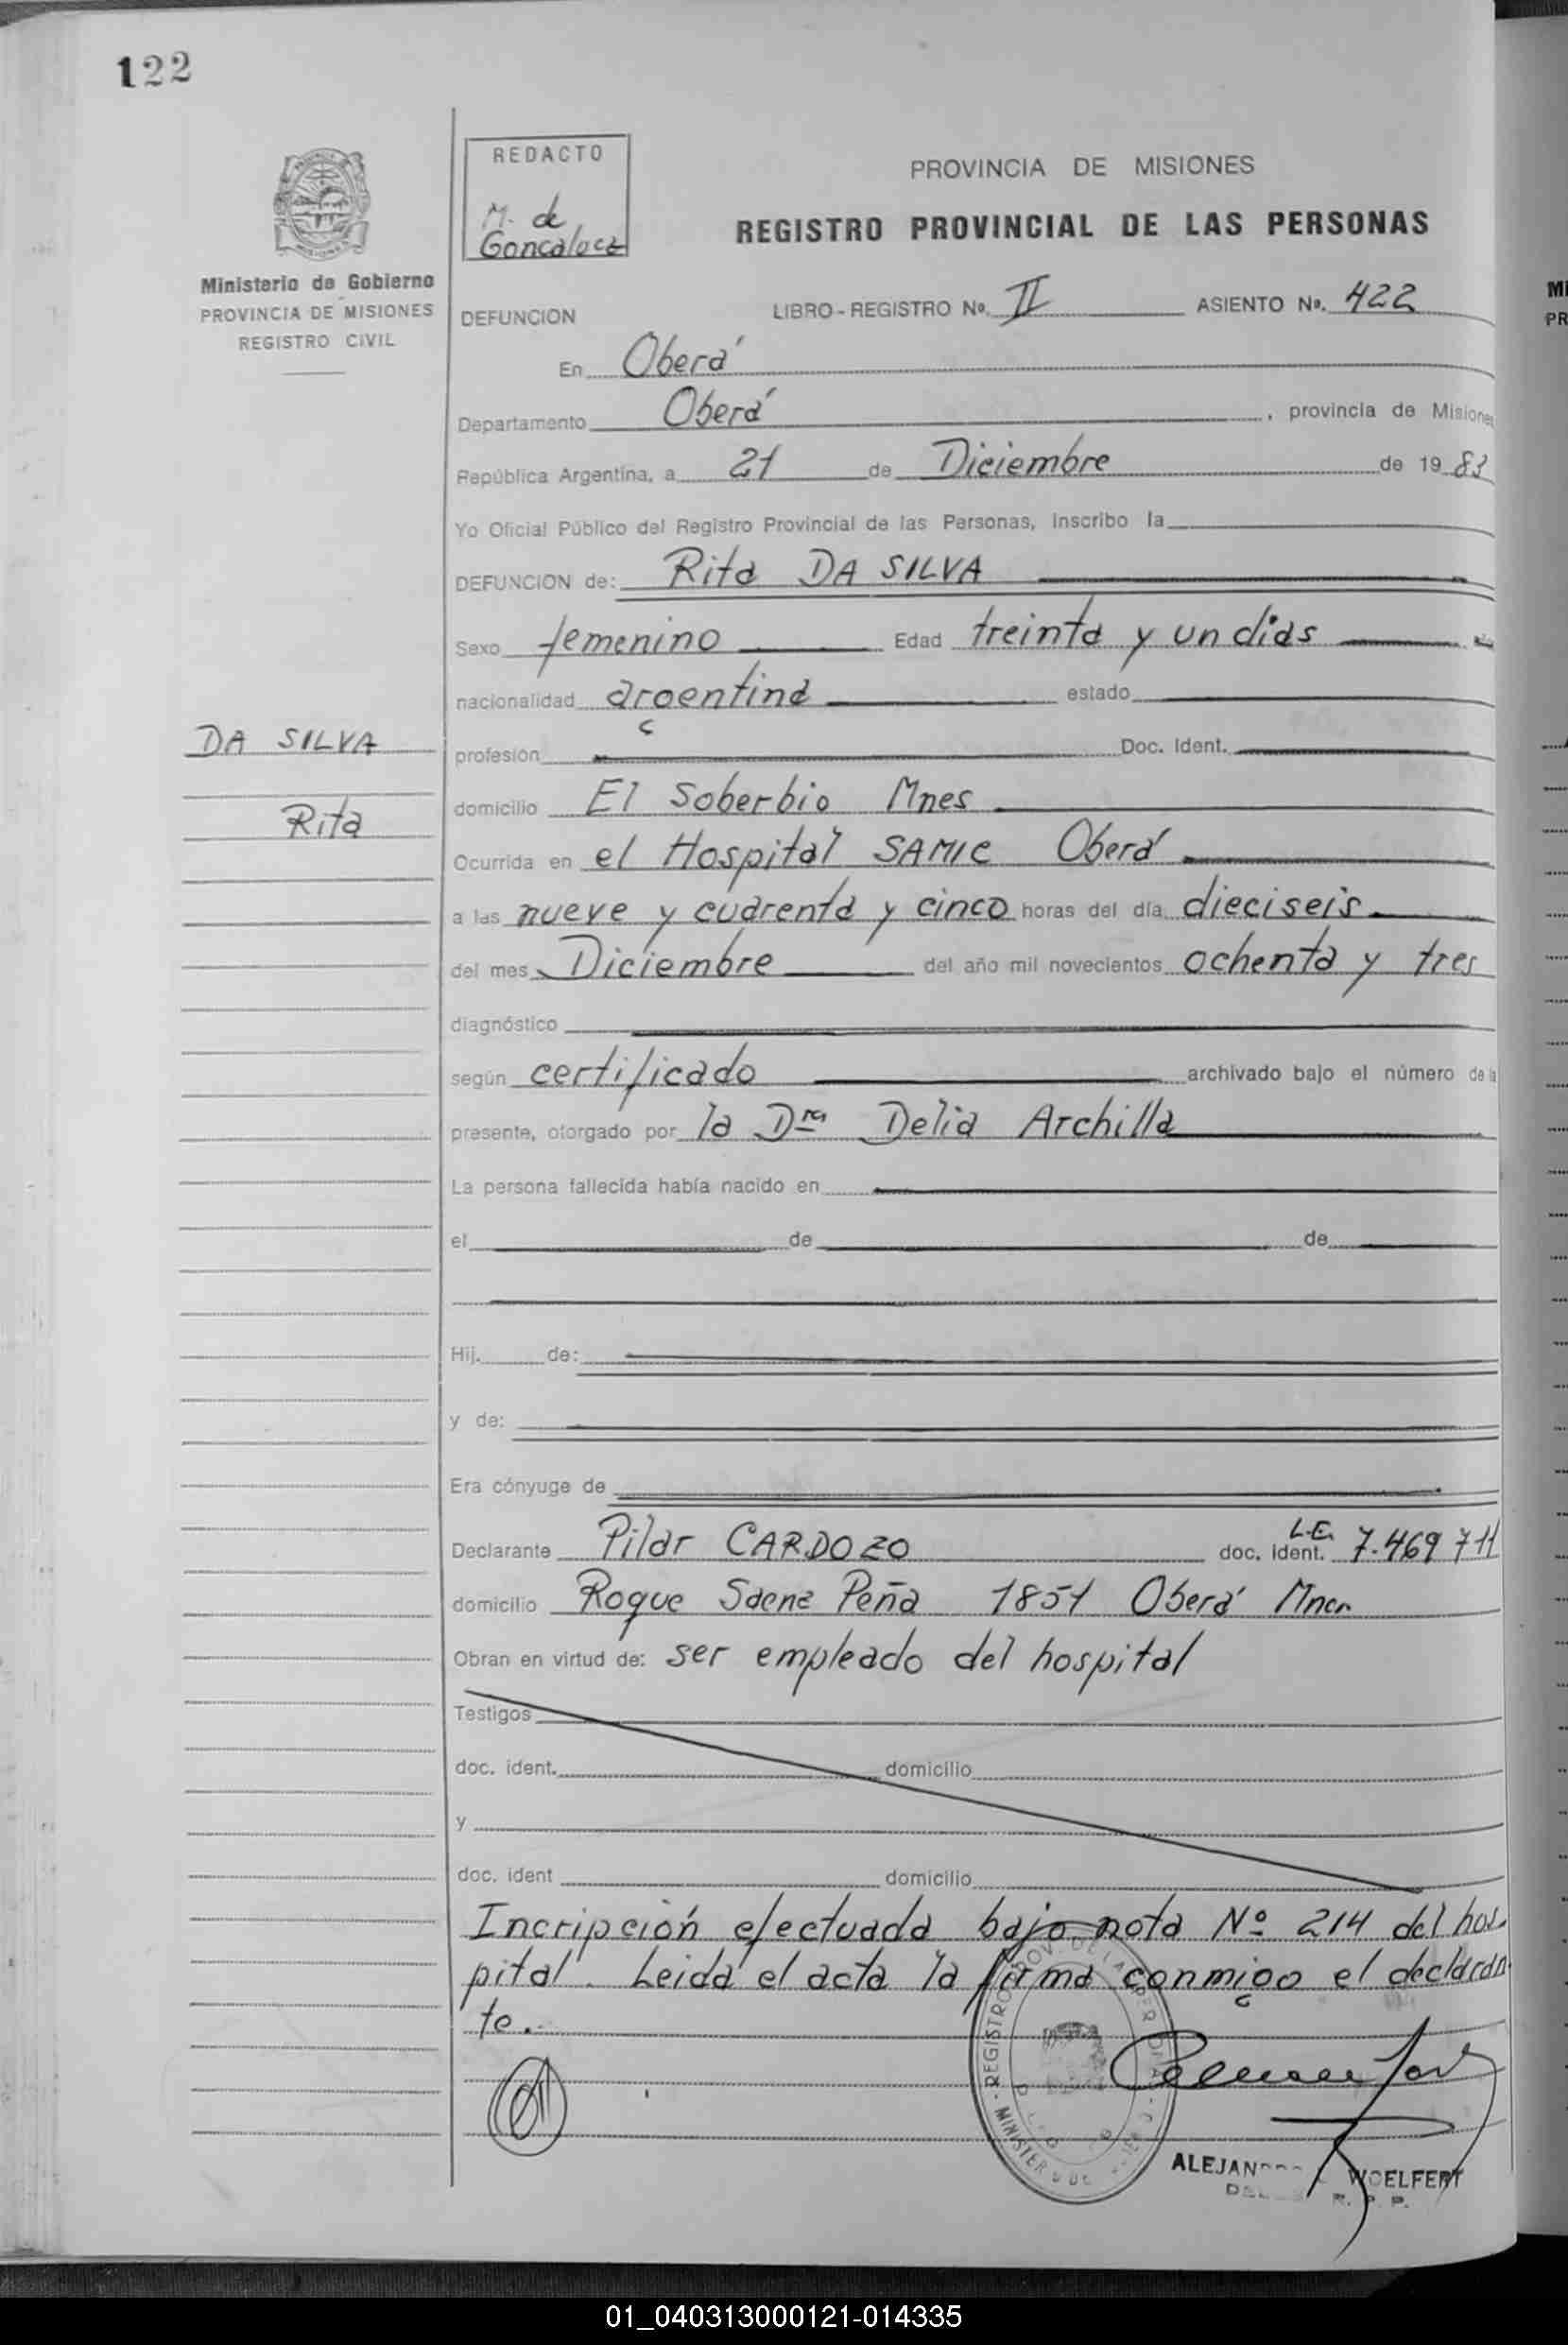 122
REDACTO
M. de
Goncalvez
Ministerio de Gobierno
PROVINCIA DE MISIONES
REGISTRO CIVIL
PROVINCIA DE MISIONES
REGISTRO PROVINCIAL DE LAS PERSONAS
DEFUNCION LIBRO - REGISTRO Nº. II ASIENTO Nº. 422
En Oberá
Departamento Oberá, provincia de Misiones
República Argentina, a 21 de Diciembre de 1983
Yo Oficial Público del Registro Provincial de las Personas, inscribo la
DEFUNCION de: Rita DA SILVA
Sexo femenino Edad treinta y un dias
nacionalidad argentina estado
DA SILVA
Rita
profesión Doc. Ident.
domicilio El Soberbio Mnes
Ocurrida en el Hospital SAMIC Oberá
a las nueve y cuarenta y cinco horas del día dieciseis
del mes Diciembre del año mil novecientos ochenta y tres
diagnóstico
según certificado archivado bajo el número de la
presente, otorgado por la Dra Delia Archilla
La persona fallecida había nacido en
el de de
Hij. de:
y de:
Era cónyuge de
Declarante Pilar CARDOZO doc. ident. L.E. 7.469 711
domicilio Roque Saenz Peña 1851 Oberá Mnes
Obran en virtud de: ser empleado del hospital
Testigos
doc. ident. domicilio
y
doc. ident domicilio
Incripción efectuada bajo nota Nº 214 del hos-
pital. Leida el acta la firma conmigo el declaran
te.
WOELFERT
R. P. P.
01_040313000121-014335